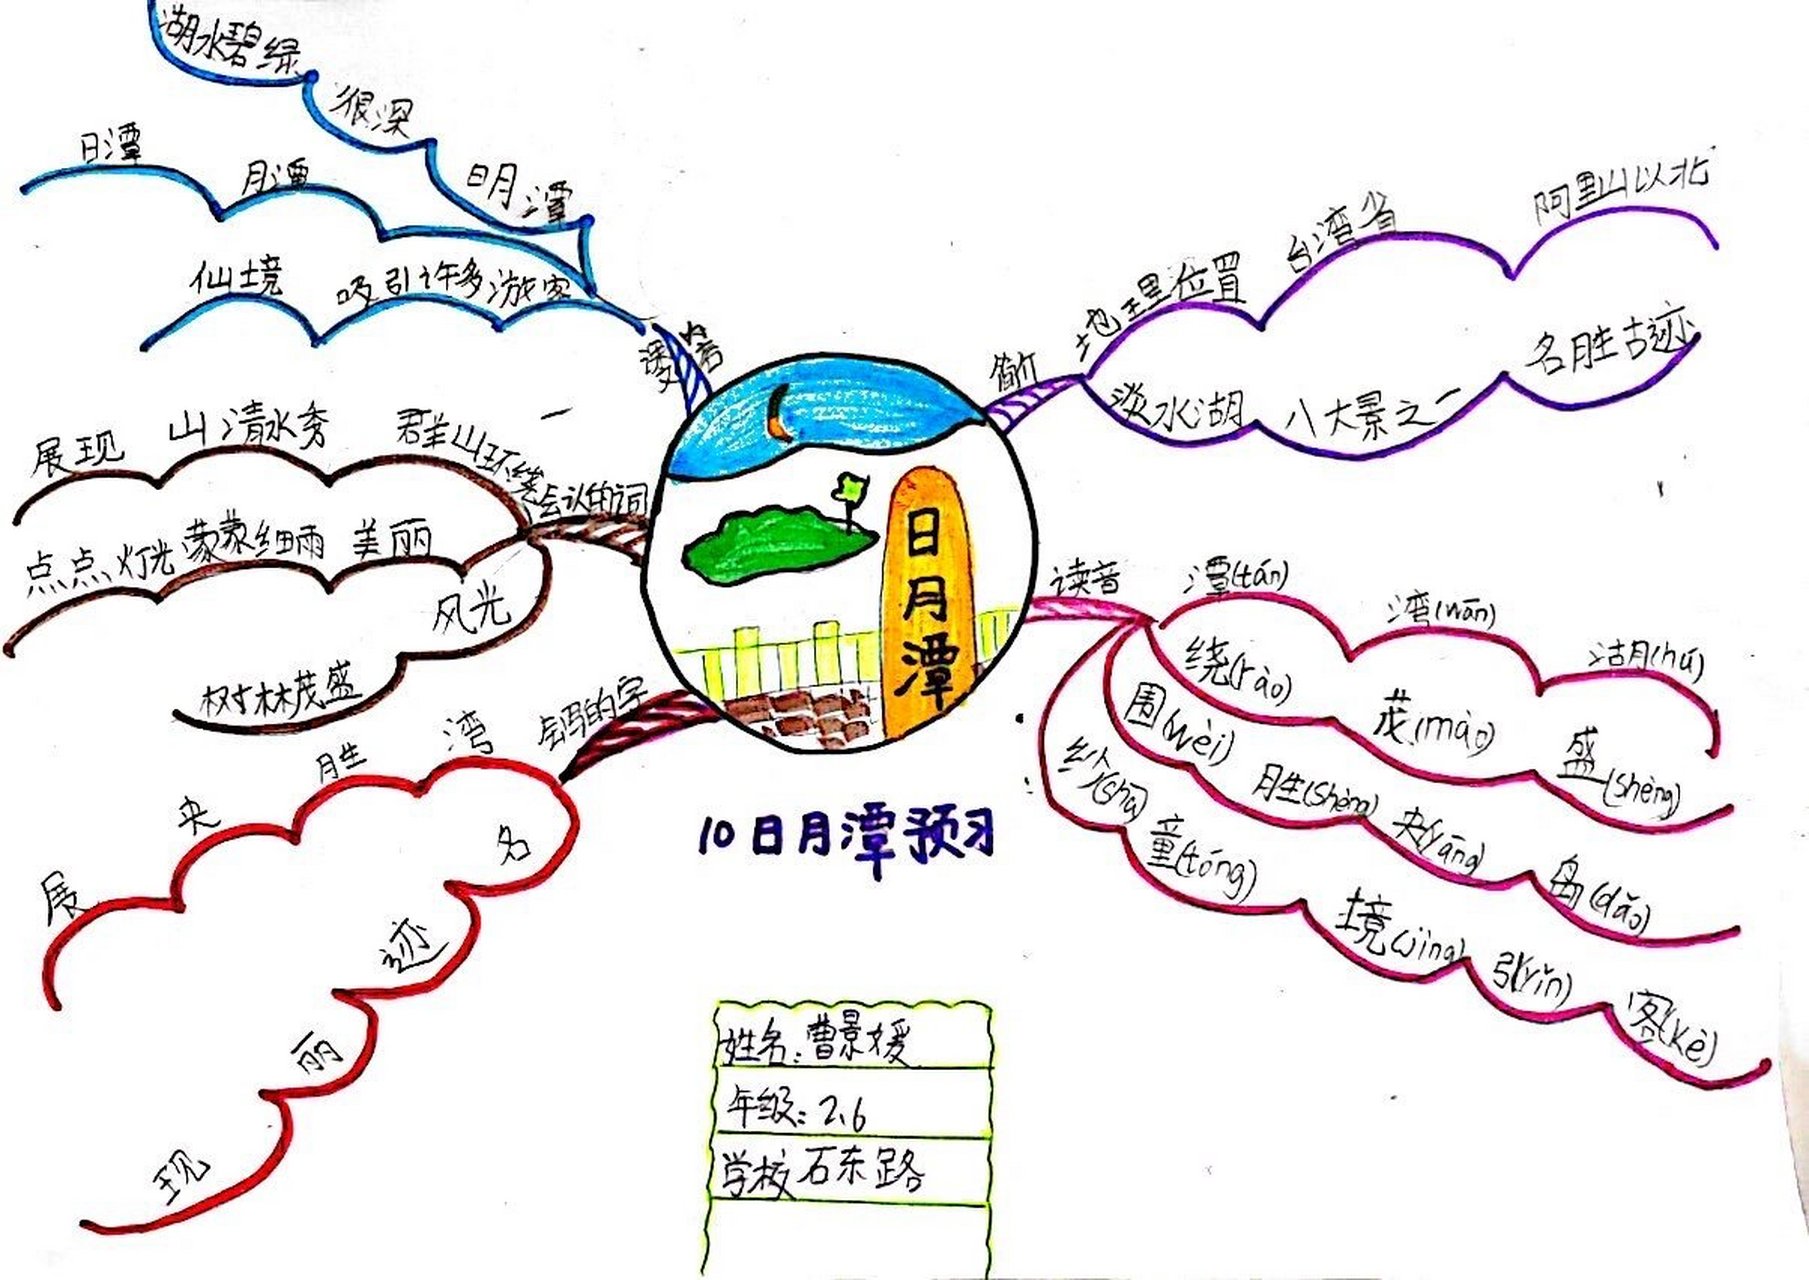 日月潭
10日月潭预习
简介
地理位置
台湾省
阿里山以北
淡水湖
八大景之一
名胜古迹
读音
潭(tán)
湾(wān)
湖(hú)
绕(rào)
茂(mào)
盛(shèng)
围(wèi)
胜(shèng)
央(yāng)
岛(dǎo)
纱(shā)
童(tóng)
境(jìng)
引(yǐn)
客(kè)
湖水碧绿
很深
日月潭
日潭
月潭
仙境
吸引许多游客
会认的词
群山环绕
山清水秀
展现
美丽
蒙蒙细雨
点点灯光
风光
树林茂盛
会写的字
湾
胜
央
展
名
迹
丽
现
姓名:曹景媛
年级:2、6
学校石东路